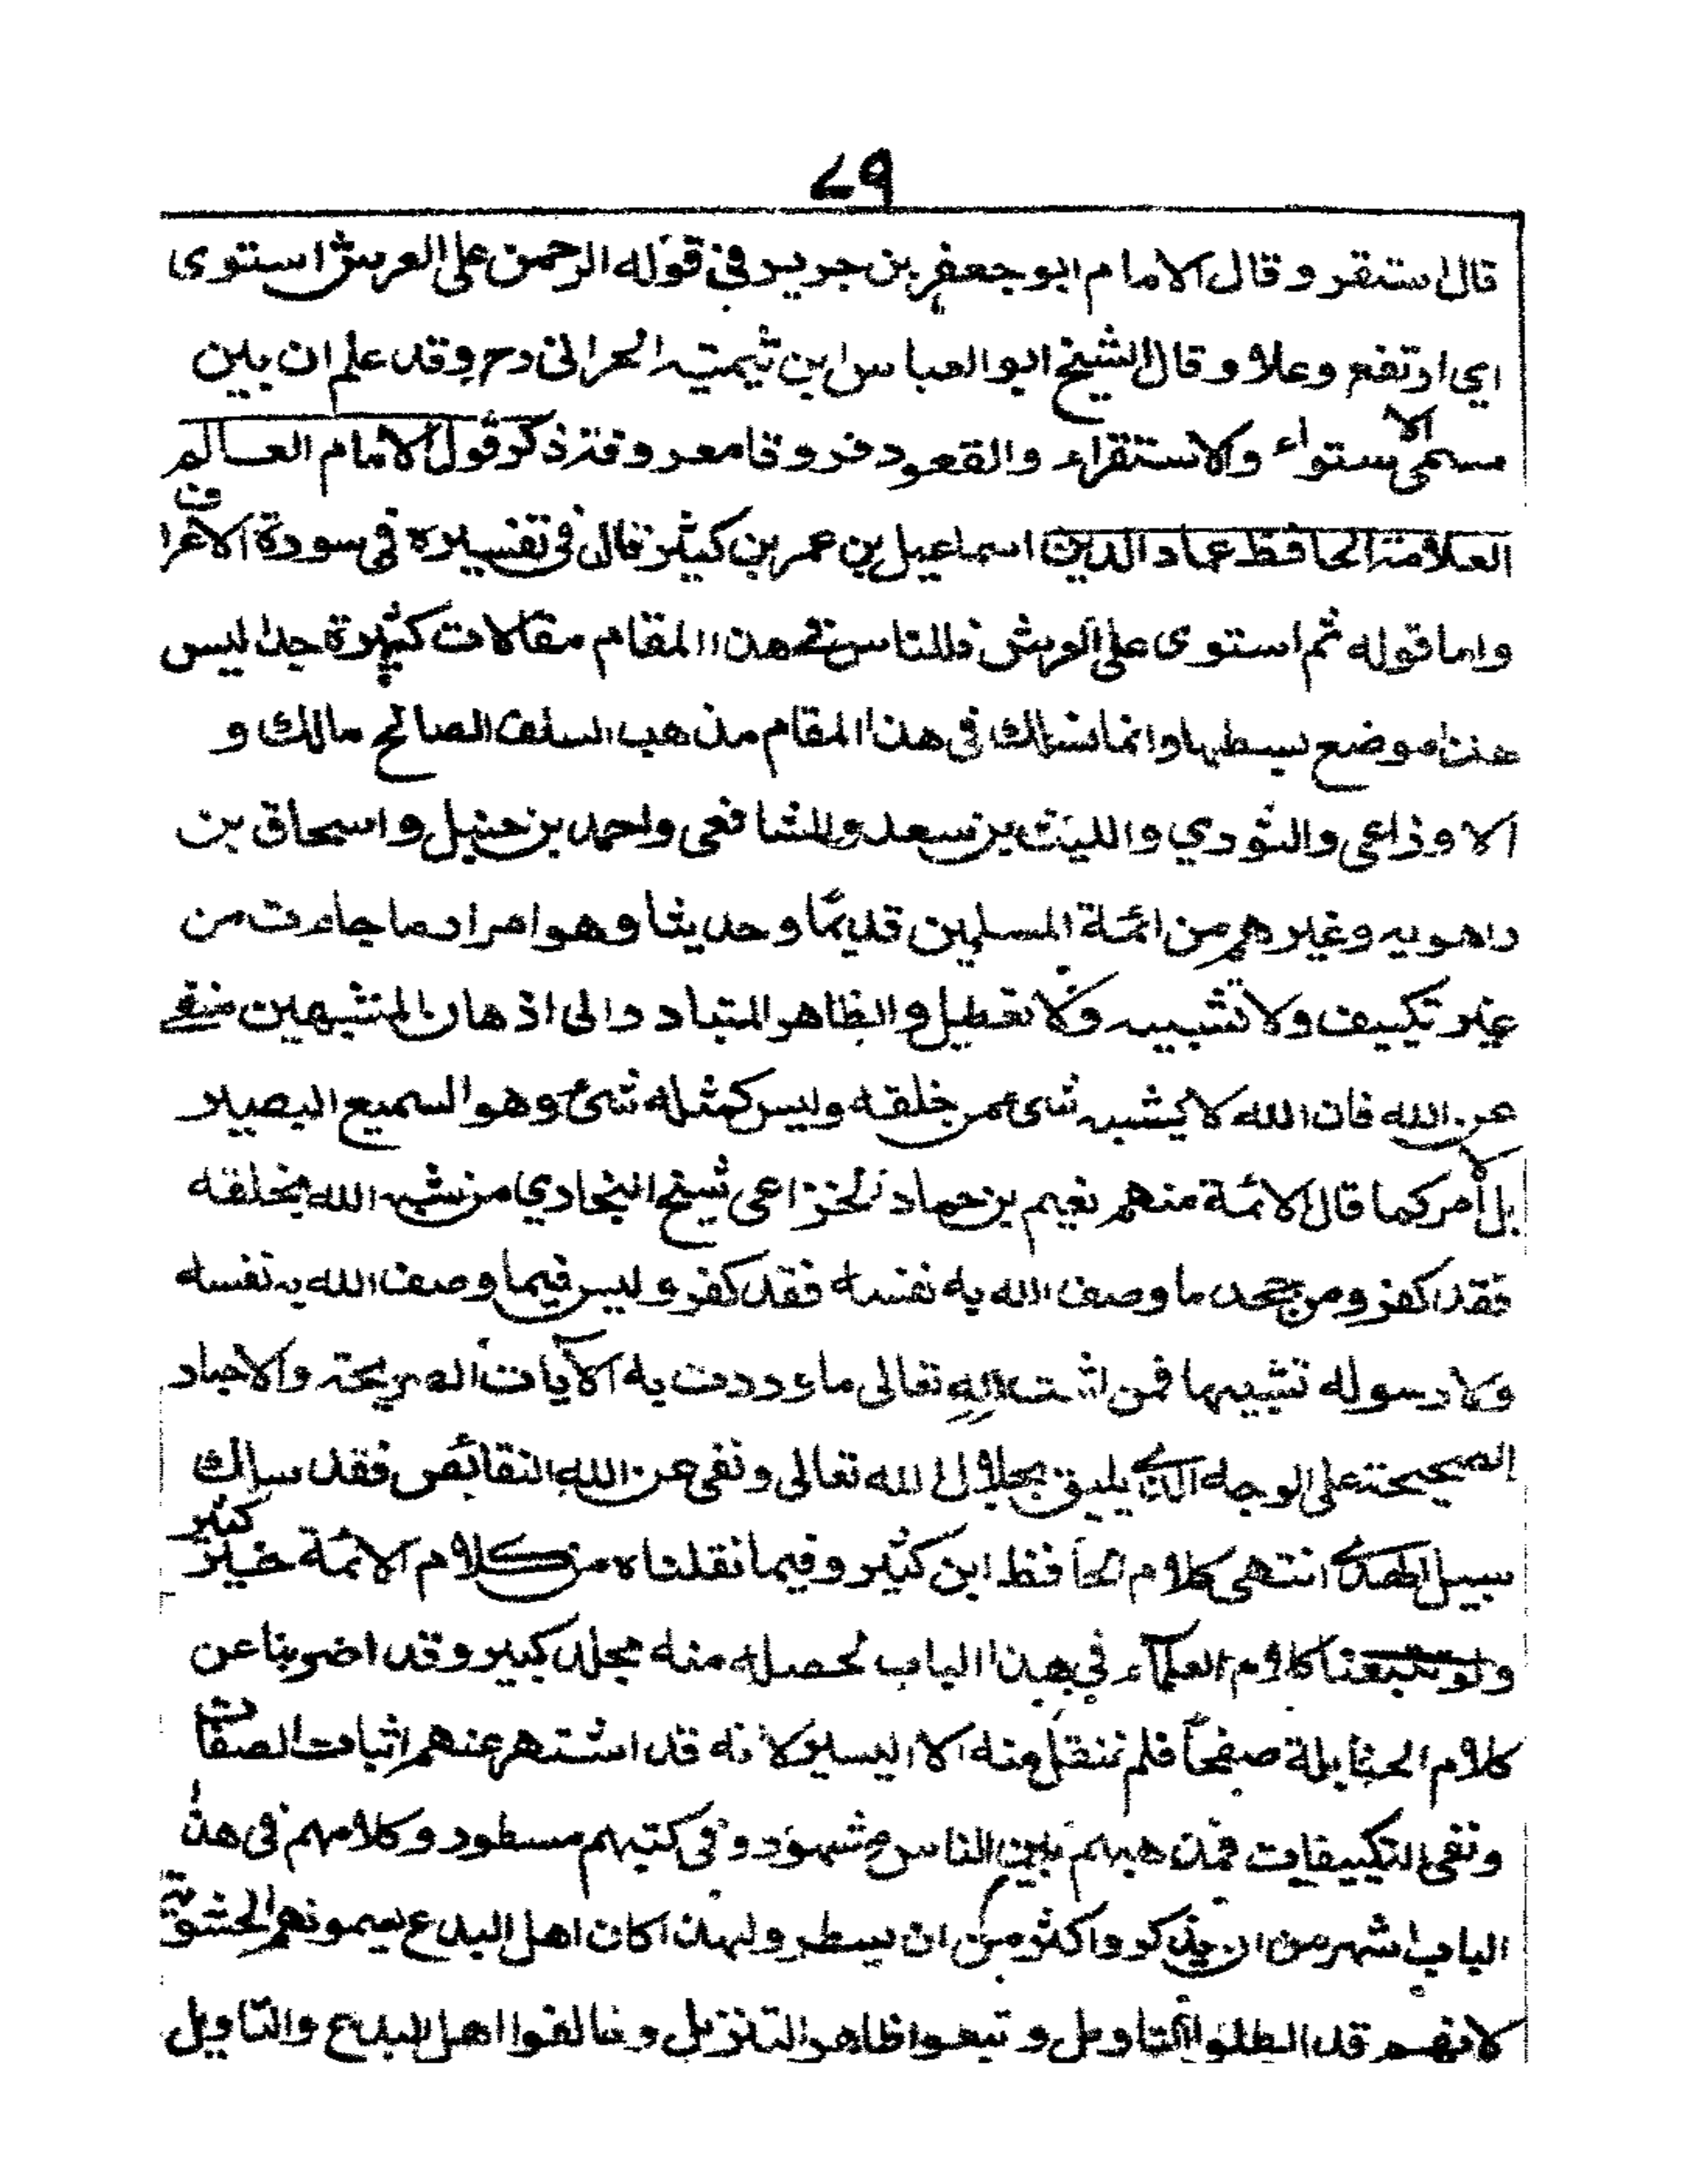 ٧٩
قال استقر وقال الامام ابو جعفر بن جرير في قوله الرحمن على العرش استوى
اي ارتفع وعلا وقال الشيخ ابو العباس ابن تيمية الحراني رح وقد علم ان بين
مسمى الاستواء والاستقراء والقعود فروقا معروفة ذكر قول الامام العالم
العلامة الحافظ عماد الدين اسماعيل بن عمر بن كثير قال في تفسيره في سورة الاعراف
واما قوله ثم استوى على العرش فللناس في هذا المقام مقالات كثيرة جدا ليس
هذا موضع بسطها وانما نسلك في هذا المقام مذهب السلف الصالح مالك و
الاوزاعي والثوري والليث بن سعد والشافعي واحمد بن حنبل واسحاق بن
راهويه وغيرهم من ائمة المسلمين قديمًا وحديثا وهو امرارها جاءت من
غير تكييف ولا تشبيه ولا تعطيل والظاهر المتبادر الى اذهان المشبهين منفي
عن الله فان الله لا يشبه شيء من خلقه وليس كمثله شيء وهو السميع البصير
بل الامر كما قال الائمة منهم نعيم بن حماد الخزاعي شيخ البخاري من شبه الله بخلقه
فقد كفر ومن جحد ما وصف الله به نفسه فقد كفر وليس فيما وصف الله به نفسه
ولا رسوله تشبيها فمن اثبت لله تعالى ما وردت به الآيات الصريحة والاخبار
الصحيحة على الوجه الذي يليق بجلال الله تعالى ونفى عن الله النقائص فقد سلك
سبيل الهدى انتهى كلام الحافظ ابن كثير وفيما نقلناه من كلام الائمة خير كثير
ولو تتبعنا كلام العلماء في هذا الباب لحصل منه مجلد كبير وقد اضربنا عن
كلام الحنابلة صفحًا فلم ننقل منه الا اليسير لانه قد اشتهر عنهم اثبات الصفات
ونفي التكييفات فمذهبهم بين الناس مشهور وفي كتبهم مسطور وكلامهم في هذا
الباب اشهر من ان يذكر واكثر من ان يسطر ولهذا كان اهل البدع يسمونهم الحشوية
لانهم قد ابطلوا التاويل وتبعوا ظاهر التنزيل وخالفوا اهل البدع والتاويل